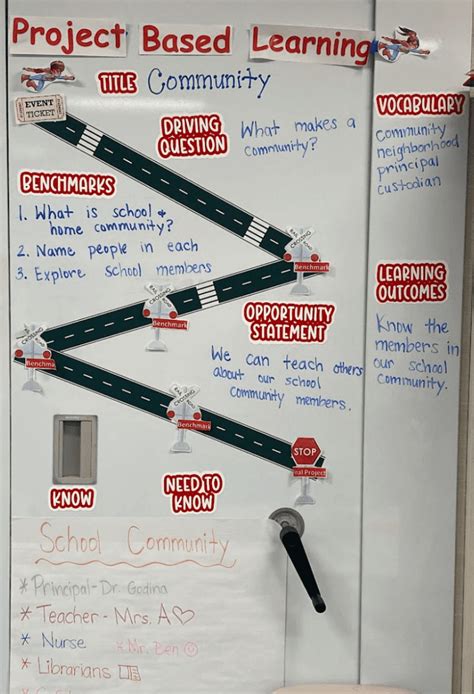 Project Based Learning
TITLE Community
EVENT
TICKET
DRIVING
QUESTION
What makes a
community?
VOCABULARY
community
neighborhood
principal
custodian
BENCHMARKS
1. What is school &
home community?
2. Name people in each
3. Explore school members
Benchmark
Benchmark
Benchma
Benchmark
LEARNING
OUTCOMES
Know the
members in
our school
community.
OPPORTUNITY
STATEMENT
We can teach others
about our school
community members.
STOP
nal Project
KNOW
NEED TO
KNOW
School Community
* Principal - Dr. Godina
* Teacher - Mrs. A
* Nurse * Mr. Ben
* Librarians